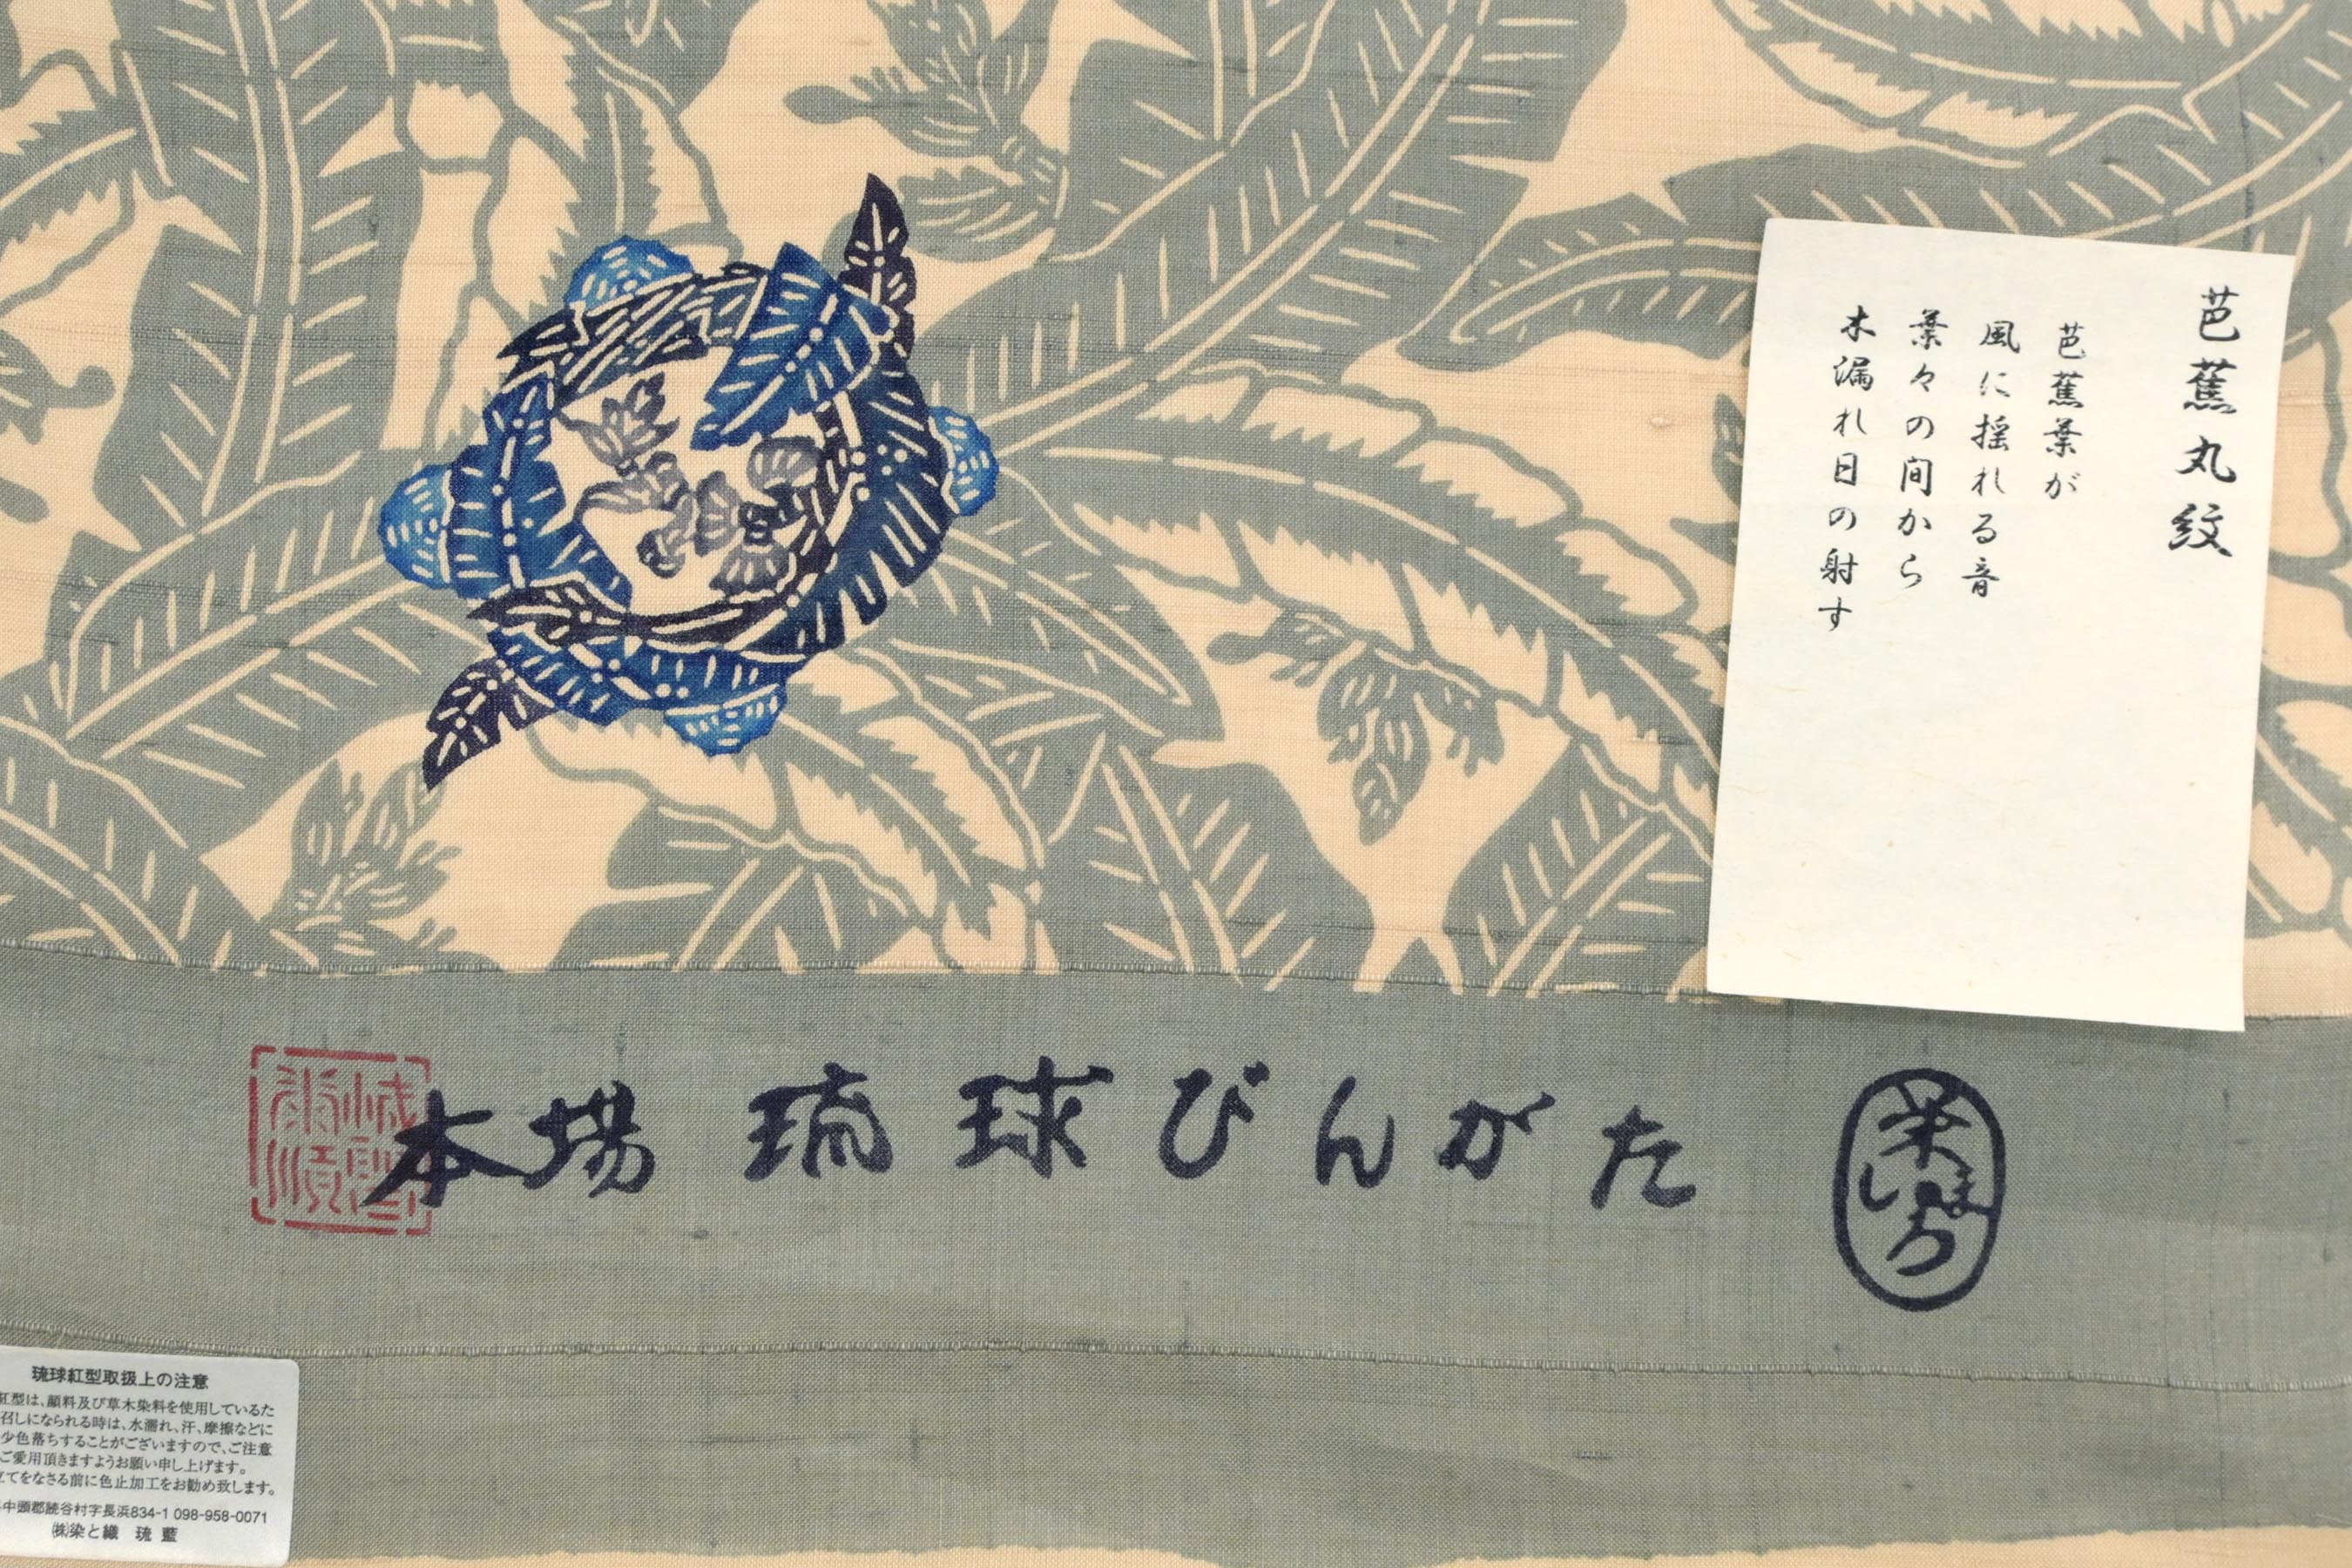 芭蕉丸紋
芭蕉葉が
風に揺れる音
葉々の間から
木漏れ日の射す
本場 琉球びんがた
琉球紅型取扱上の注意
紅型は、顔料及び草木染料を使用しているた
召しになられる時は、水濡れ、汗、摩擦などに
少色落ちすることがございますので、ご注意
ご愛用頂きますようお願い申し上げます。
立てをなさる前に色止加工をお勧め致します。
中頭郡読谷村字長浜834-1 098-958-0071
㈱染と織 琉藍